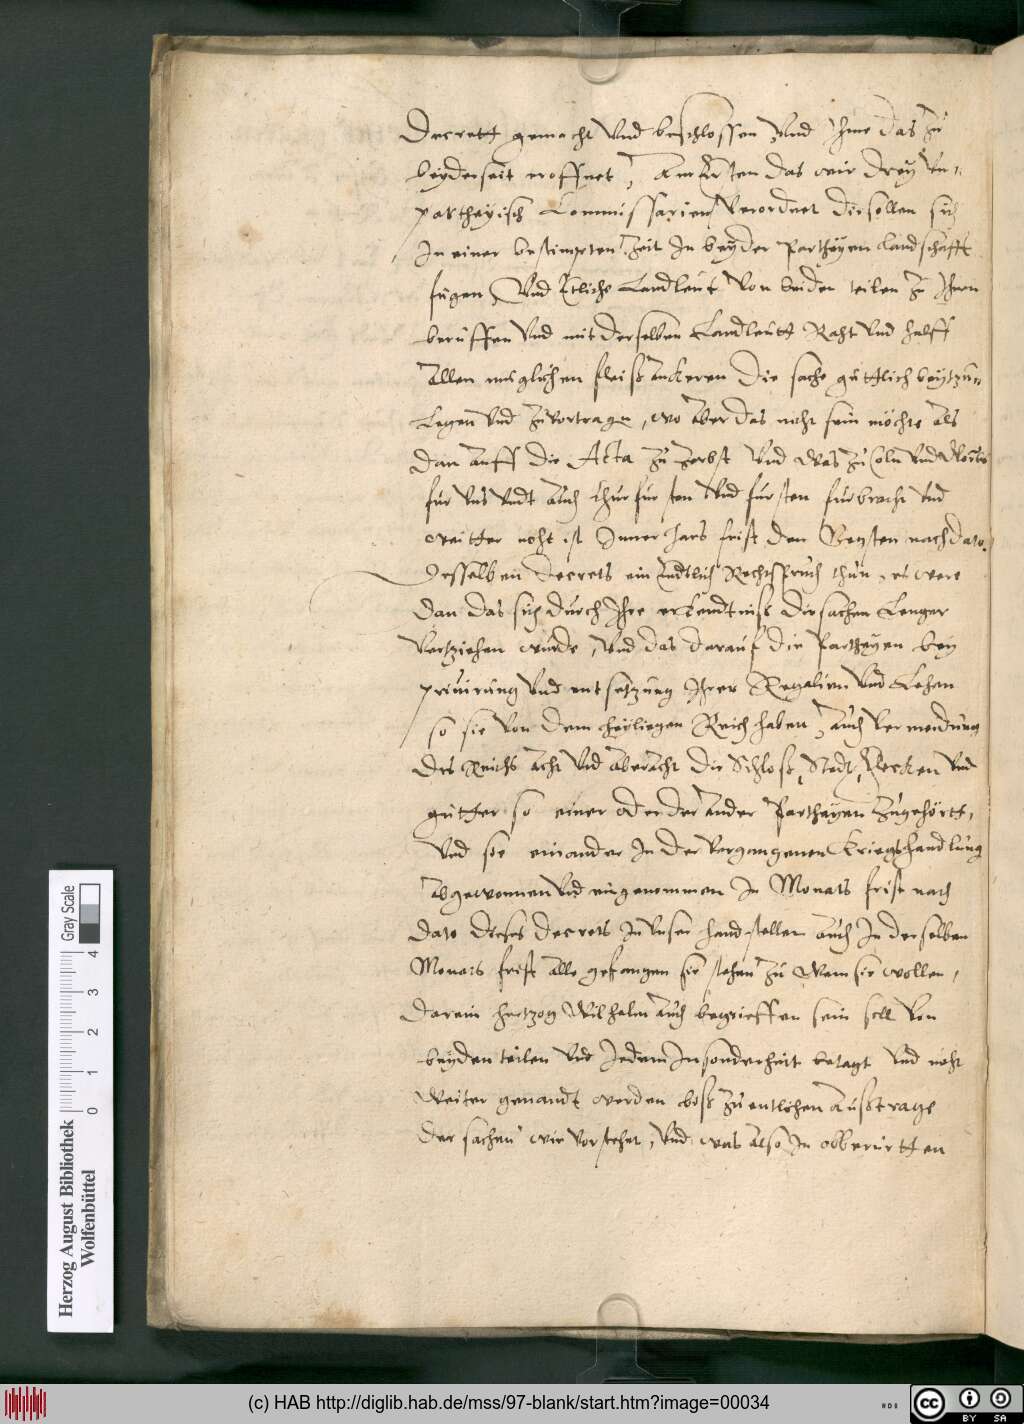 Decrett gemacht Vnd beschlossen Vnd Ihme das zu
beyderseit eroffnet, Am Ersten das wir drey Vn-
partheyisch Commissarien Verordnet die sollen sich
In einer bestimpten Zeit In beyder Partheyen Landschafft
fugen, Vnd Etliche Landleut Von beiden teilen zu Ihnen
beruffen Vnd mit derselben Landleutt Raht Vnd hulff
Allen muglichen fleiß Ankeren Die sache guttlich beytzu-
Legen Vnd Zuvortragen, wo Aber das nicht sein mochte Als
dan Auff die Acta zu Zerbst Vnd Was zu Coln Vnd Worms
fur Vns Vndt Auch Churfursten Vnd fursten furbracht Vnd
weitter noht ist Inner Jars frist den Negsten nach dato
desselben Decrets ein Endtlich Rechtspruch thun, es were
dan das sich durch Ihre erkendtniß die sachen Lenger
Vertziehen wurde, Vnd das darauf die Partheyen bey
priuirung Vnd entsetzung Ihrer Regalien Vnd Lehen
so sie Von dem heyligen Reich haben, Auch Vermeidung
des Reichs Acht Vnd AberAcht die Schloß, Stedt, Flecken Vnd
gutter so einer oder der Ander Partheyen Zugehörtt,
Vnd sie einander In der Vergangenen Kriegshandlung
Abgewonnen Vnd eingenommen In Monats frist nach
dato dieses Decrets In Vnser hand stellen Auch In derselben
Monats frist Alle gefangen sie stehen zu Wem sie wollen,
darein hertzog Wilhelm Auch begrieffen sein soll Von
beyden teilen Vnd Jedem Insonderheit betagt Vnd nicht
Weiter genandt werden biß zu entlichen Außtrage
der sachen wie Vorstehet, Vnd was Also In obberurtten
Herzog August Bibliothek
Wolfenbüttel
0 1 2 3 4
Gray Scale
(c) HAB http://diglib.hab.de/mss/97-blank/start.htm?image=00034
cc BY SA